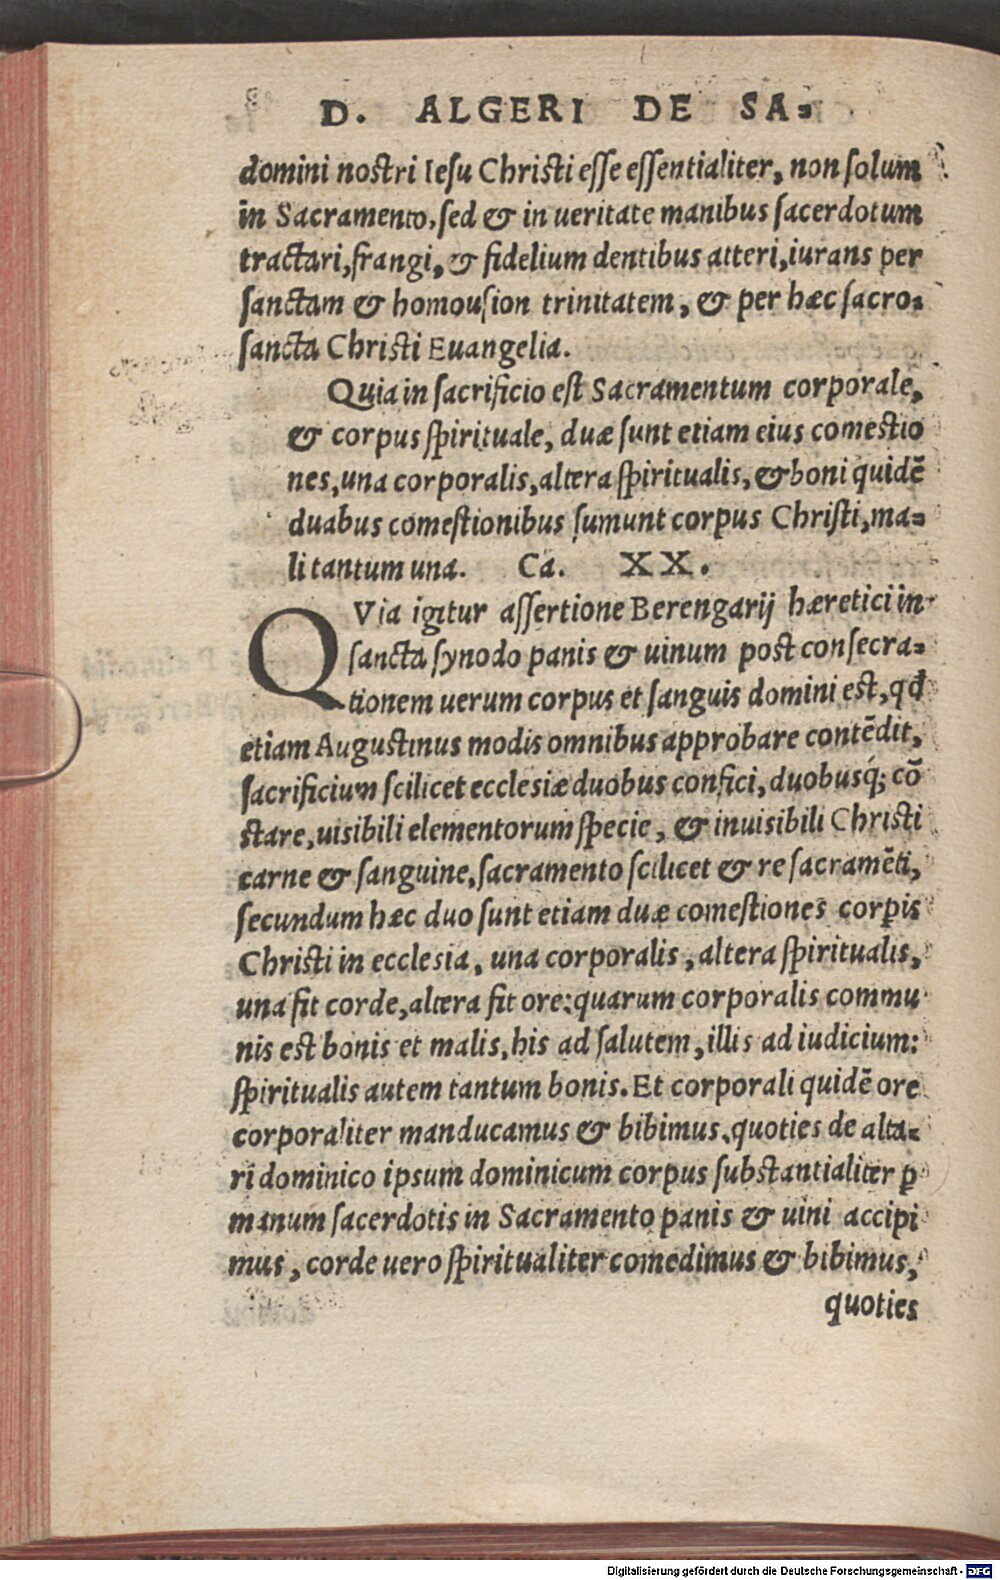 D. ALGERI DE SA-
domini nostri Iesu Christi esse essentialiter, non solum
in Sacramento, sed & in ueritate manibus sacerdotum
tractari, frangi, & fidelium dentibus atteri, iurans per
sanctam & homousion trinitatem, & per hæc sacro-
sancta Christi Euangelia.
Quia in sacrificio est Sacramentum corporale,
& corpus spirituale, duæ sunt etiam eius comestio
nes, una corporalis, altera spiritualis, & boni quidē
duabus comestionibus sumunt corpus Christi, ma-
li tantum una. Ca. XX.
QVia igitur assertione Berengarij hæretici in
sancta synodo panis & uinum post consecra-
tionem uerum corpus et sanguis domini est, qđ
etiam Augustinus modis omnibus approbare contēdit,
sacrificium scilicet ecclesiæ duobus confici, duobusq́; cō
stare, uisibili elementorum specie, & inuisibili Christi
carne & sanguine, sacramento scilicet & re sacramēti,
secundum hæc duo sunt etiam duæ comestiones corꝑis
Christi in ecclesia, una corporalis, altera spiritualis,
una fit corde, altera fit ore: quarum corporalis commu
nis est bonis et malis, his ad salutem, illis ad iudicium:
spiritualis autem tantum bonis. Et corporali quidē ore
corporaliter manducamus & bibimus, quoties de alta-
ri dominico ipsum dominicum corpus substantialiter ꝑ
manum sacerdotis in Sacramento panis & uini accipi
mus, corde uero spiritualiter comedimus & bibimus,
quoties
Digitalisierung gefördert durch die Deutsche Forschungsgemeinschaft - DFG